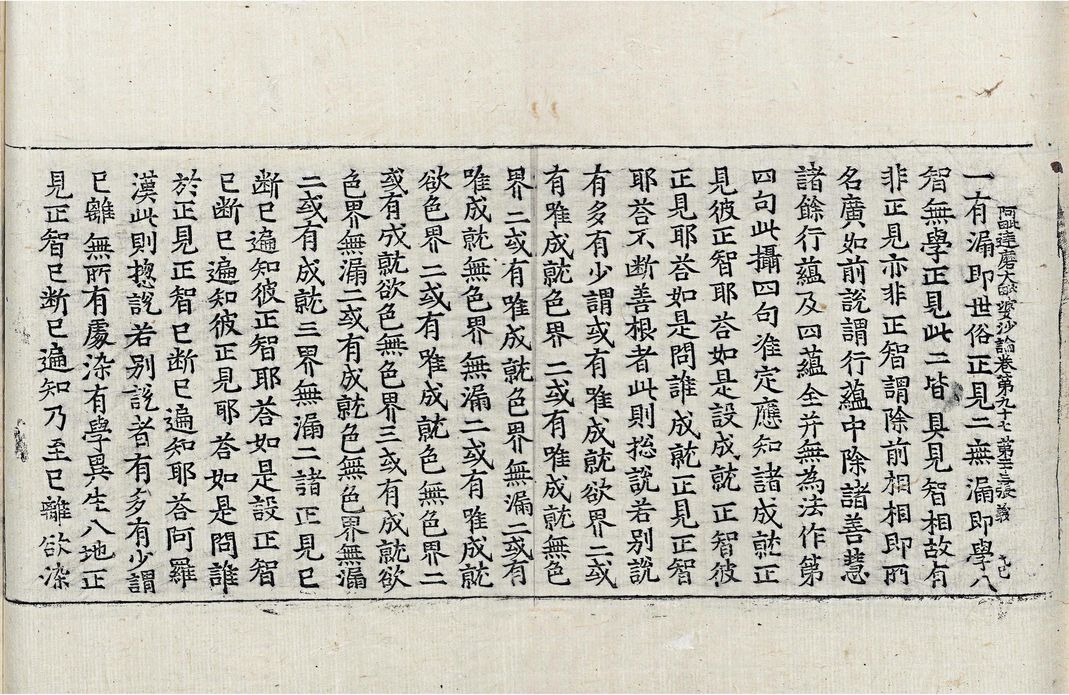 阿毗達磨大毗婆沙論卷第九十七 第十三張 義
一有漏即世俗正見二無漏即學八
智無學正見此二皆具見智相故有
非正見亦非正智謂除前相相即所
名廣如前說謂行蘊中除諸善慧
諸餘行蘊及四蘊全并無為法作第
四句此攝四句准定應知諸成就正
見彼正智耶荅如是設成就正智彼
正見耶荅如是問誰成就正見正智
耶荅不斷善根者此則揔說若別說
有多有少謂或有唯成就欲界二或
有唯成就色界二或有唯成就無色
界二或有唯成就色界無漏二或有
唯成就無色界無漏二或有唯成就
欲色界二或有唯成就色無色界二
或有成就欲色無色界三或有成就欲
色界無漏二或有成就色無色界無漏
二或有成就三界無漏二諸正見已
断已遍知彼正智耶荅如是設正智
已断已遍知彼正見耶荅如是問誰
於正見正智已断已遍知耶荅阿羅
漢此則揔說若別說者有多有少謂
已離無所有處染有學異生八地正
見正智已断已遍知乃至已離欲染